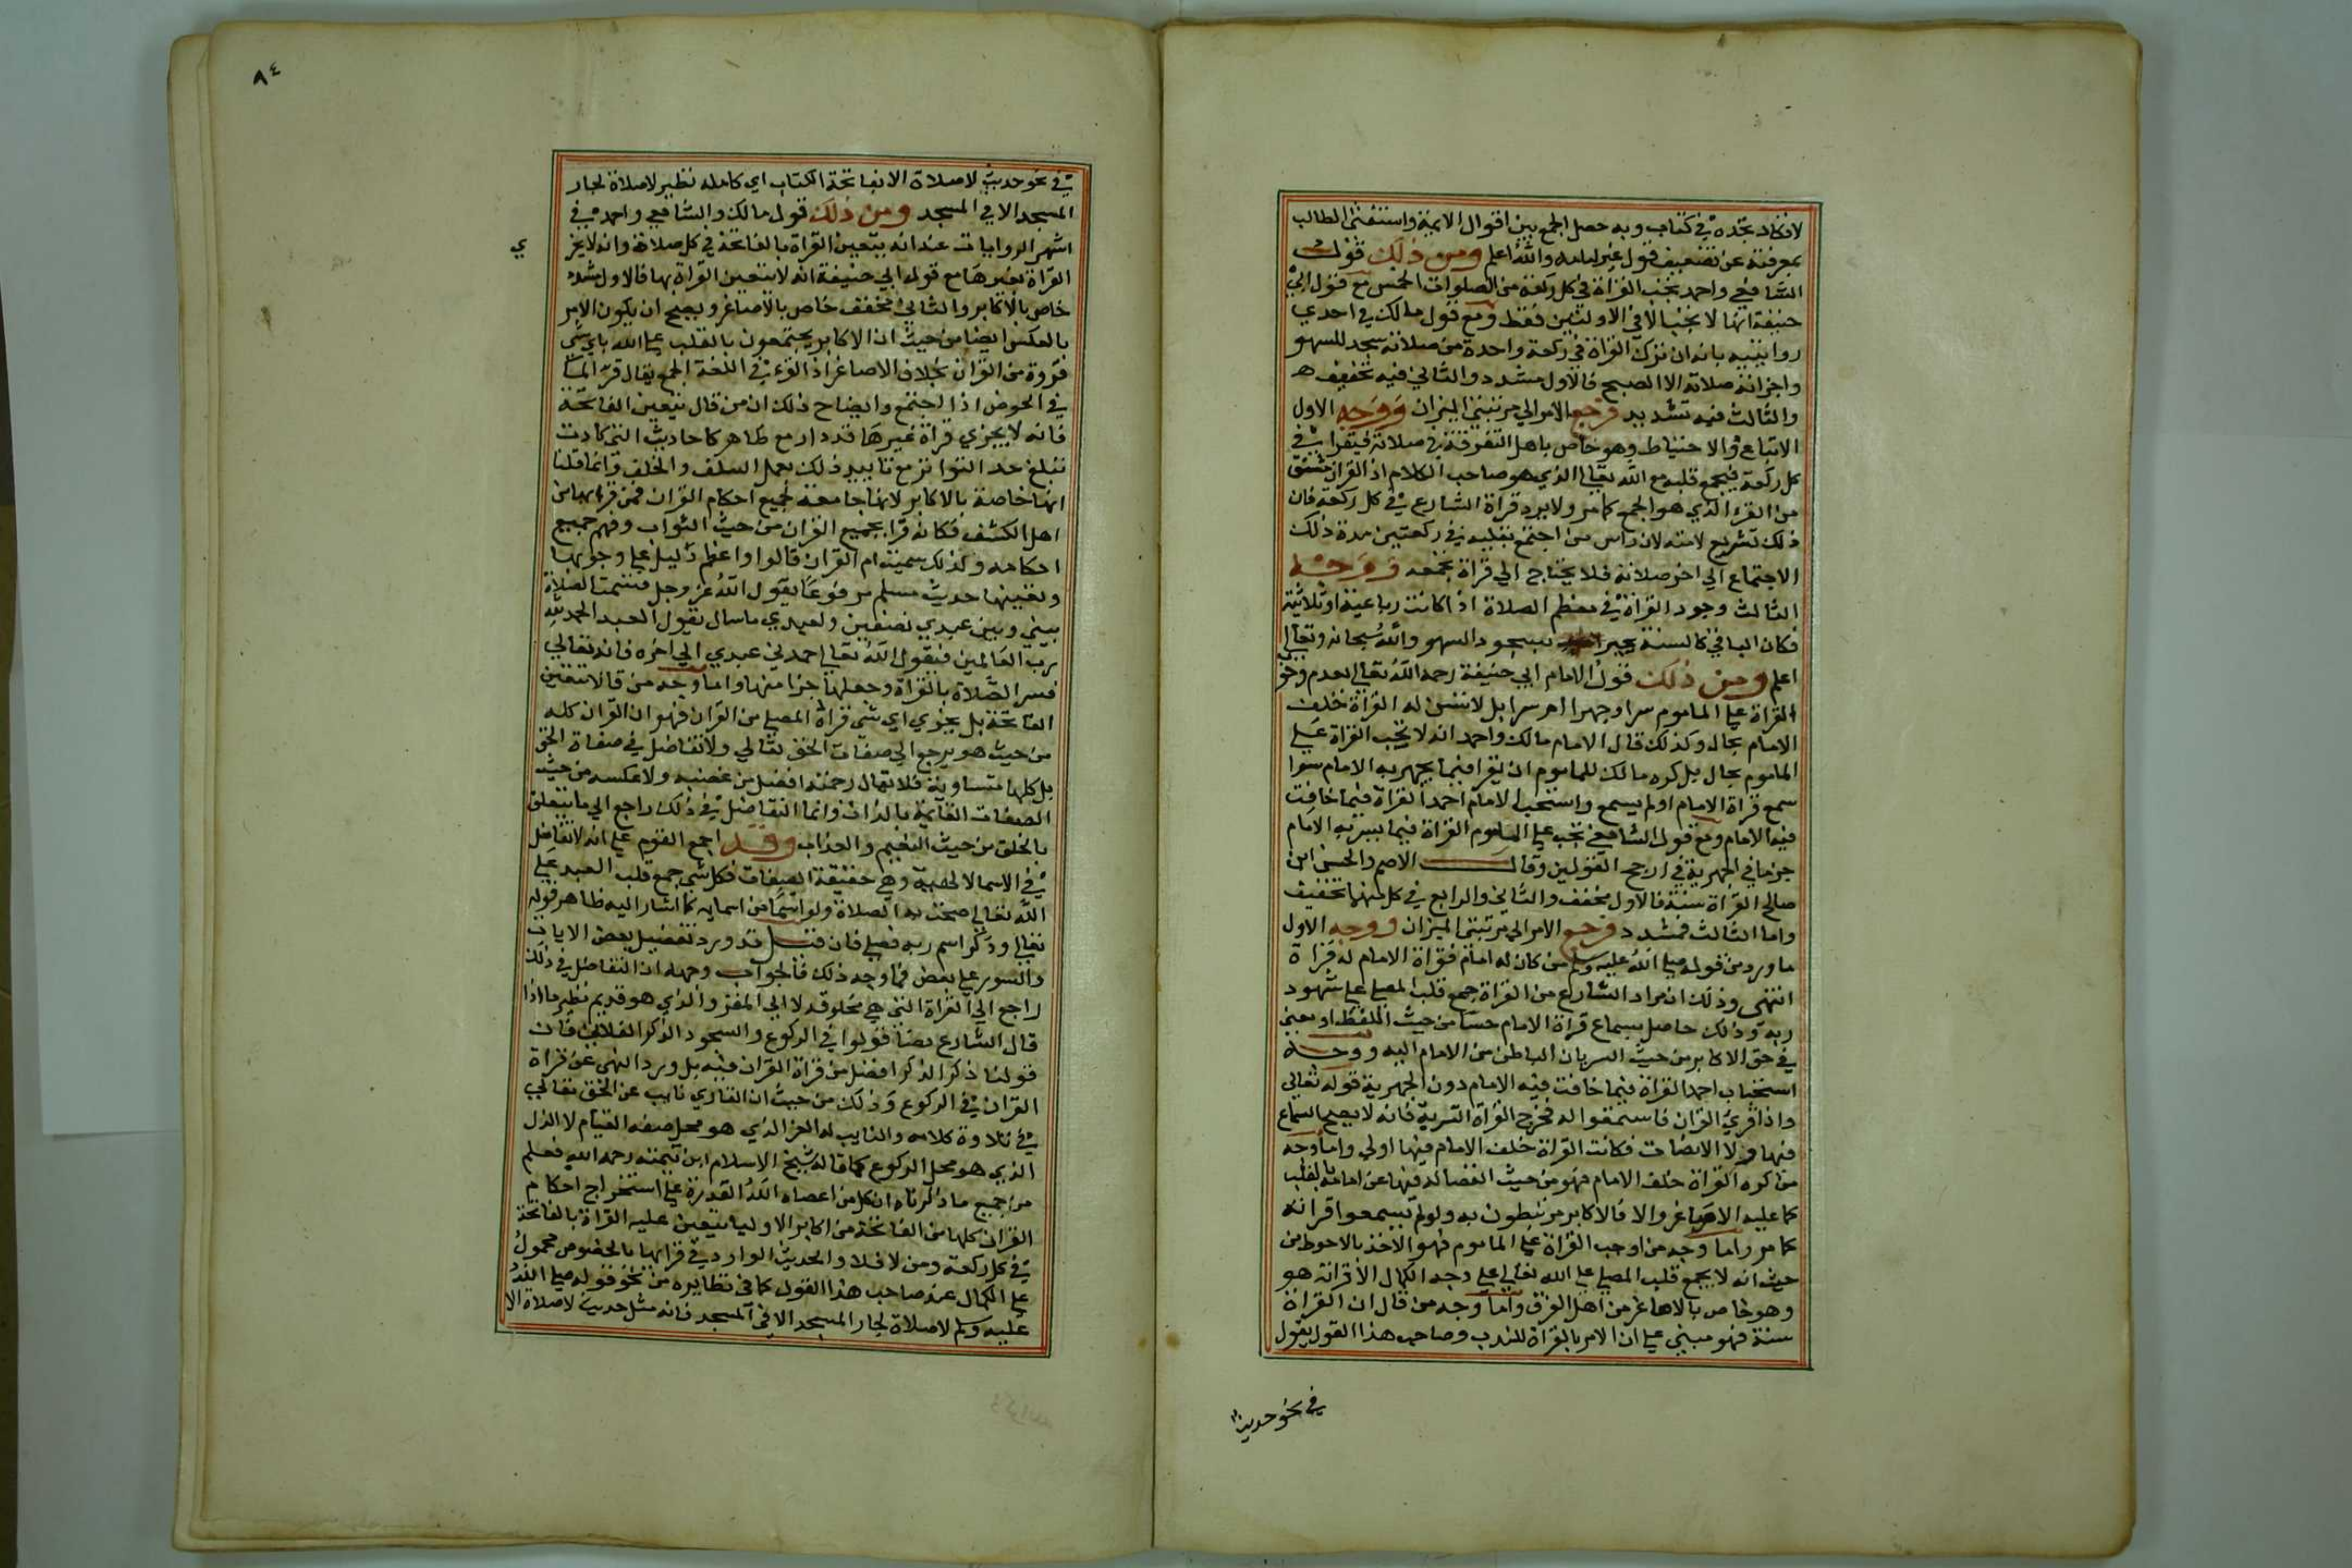 لا تكاد تجده في كتاب وبه حصل الجمع بين اقوال الايمة واستغنى الطالب
بمعرفته عن تضعيف قول غير امامه والله اعلم ومن ذلك قول
الشافعي واحمد تجب القراة في كل ركعة من الصلوات الخمس مع قول ابي
حنيفة انها لا تجب الا في الاولتين فقط ومع قول مالك في احدي
روايتيه بانه ان ترك القراة في ركعة واحدة من صلاته سجد للسهو
واجزاته صلاته الا الصبح فالاول مشدد والثاني فيه تخفيف
والثالث فيه تشديد فرجع الامر الي مرتبتي الميزان ووجه الاول
الاتباع والاحتياط وهو خاص باهل التفرقة في صلاته فيقرا في
كل ركعة فيجمع قلبه مع الله تعالي الذي هو صاحب الكلام اذ القران مشتق
من القرء الذي هو الجمع كما مر ولا يرد قراة الشارع في كل ركعة فان
ذلك تشريع لامته لانه راس من اجتمع بقلبه في ركعتين مدة ذلك
الاجتماع الي اخر صلاته فلا يحتاج الي قراة تجمعه ووجه
الثالث وجود القراة في معظم الصلاة اذا كانت رباعية او ثلاثية
فكان الباقي كالسنة يجبر بسجود السهو والله سبحانه وتعالي
اعلم ومن ذلك قول الامام ابي حنيفة رحمه الله تعالي بعدم وجوب
القراة علي الماموم سرا وجهرا ام سرا بل لا تسن له القراة خلف
الامام بحال وكذلك قال الامام مالك واحمد انه لا تجب القراة علي
الماموم بحال بل كره مالك للماموم ان يقرا فيما يجهر به الامام سوا
سمع قراة الامام او لم يسمع واستحب الامام احمد القراة فيما خافت
فيه الامام ومع قول الشافعي تجب علي الماموم القراة فيما يسر به الامام
جزما في الجهرية في ارجح القولين وقال الاصم والحسن ابن
صالح القراة سنة فالاول مخفف والثاني والرابع في كل منهما تخفيف
واما الثالث فمشدد فرجع الامر الي مرتبتي الميزان ووجه الاول
ما ورد من قوله صلي الله عليه وسلم من كان له امام فقراة الامام له قراة
انتهى وذلك ان مراد الشارع من القراة جمع قلب المصلي علي شهود
ربه وذلك حاصل بسماع قراة الامام حسا من حيث اللفظ او معني
في حق الاكابر من حيث السريان الباطن من الامام اليه ووجه
استحباب احمد القراة فيما خافت فيه الامام دون الجهرية قوله تعالي
واذا قرئ القران فاستمعوا له فخرج القراة السرية فانه لا يصح السماع
فيها ولا الانصات فكانت القراة خلف الامام فيها اولي واما وجه
من كره القراة خلف الامام فهو من حيث انفصاله فيها عن امامه بالقلب
كما عليه الاصاغر والا فالاكابر مرتبطون به ولو لم يسمعوا قراته
كما مر واما وجه من اوجب القراة علي الماموم فهو الاخذ بالاحوط من
حيث انه لا يجمع قلب المصلي علي الله تعالي علي وجه الكمال الا قراته هو
وهو خاص بالاصاغر من اهل الفرق واما وجه من قال ان القراة
سنة فهو مبني علي ان الامر بالقراة للندب وصاحب هذا القول يقول
في نحو حديث
٨٤
في نحو حديث لا صلاة الا بفاتحة الكتاب اي كاملة نظير لا صلاة لجار
المسجد الا في المسجد ومن ذلك قول مالك والشافعي واحمد في
اشهر الروايات عنه انه يتعين القراة بالفاتحة في كل صلاة وانه لا يجز
ي
القراة بغيرها مع قول ابي حنيفة انه لا تتعين القراة بها فالاول مشدد
خاص بالاكابر والثاني مخفف خاص بالاصاغر ويصح ان يكون الامر
بالعكس ايضا من حيث ان الاكابر يجتمعون بالقلب علي الله باي شي
قروه من القران بخلاف الاصاغر اذ القرء في اللغة الجمع يقال قرء الماء
في الحوض اذا اجتمع وايضاح ذلك ان من قال بتعين الفاتحة
فانه لا يجزي قراة غيرها قد دار مع ظاهر كاحاديث التي كادت
تبلغ حد التواتر مع تاييد ذلك بعمل السلف والخلف وانما قلنا
انها خاصة بالاكابر لانها جامعة لجميع احكام القران فمن قرا بها من
اهل الكشف فكانه قرا بجميع القران من حيث الثواب وفهم جميع
احكامه وكذلك سميت ام القران قالوا واعظم دليل علي وجوبها
وتعيينها حديث مسلم مرفوعا يقول الله عز وجل قسمت الصلاة
بيني وبين عبدي نصفين ولعبدي ما سال يقول العبد الحمد لله
رب العالمين فيقول الله تعالي احمدني عبدي الي اخره فانه تعالي
فسر الصلاة بالقراة وجعلها جزا منها واما وجه من قال لا تتعين
الفاتحة بل يجزي اي شي قراة المصلي من القران فهو ان القران كله
من حيث هو يرجع الي صفات الحق تعالي ولا تفاضل في صفات الحق
بل كلها متساوية فلا يقال رحمته افضل من غضبه ولا عكسه من حيث
الصفات القائمة بالذات وانما التفاضل في ذلك راجع الي ما يتعلق
بالخلق من حيث النعيم والعذاب وقد اجمع القوم علي انه لا تفاضل
في الاسما الالهية وهي حقيقة الصفات فكل شي جمع قلب العبد علي
الله تعالي صحت به الصلاة ولو اسما من اسمايه كما اشار اليه ظاهر قوله
تعالي وذكر اسم ربه فصلي فان قيل قد ورد تفضيل بعض الايات
والسور علي بعض فما وجه ذلك فالجواب وجهه ان التفاضل في ذلك
راجع الي القراة التي هي مخلوقة لا الي المقروء الذي هو قديم نظير ما اذا
قال الشارع لنا قولوا في الركوع والسجود الذكر الفلاني فان
قولنا ذكر الذكر افضل من قراة القران فيه بل ورد النهى عن قراة
القران في الركوع وذلك من حيث ان القاري نايب عن الحق تعالي
في تلاوة كلامه والنايب له العز الذي هو محل صفة القيام لا الذل
الذي هو محل الركوع كما قاله شيخ الاسلام ابن تيمية رحمه الله فعلم
من جميع ما ذكرناه ان كل من اعطاه الله القدرة علي استخراج احكام
القران كلها من الفاتحة من اكابر الاوليا يتعين عليه القراة بالفاتحة
في كل ركعة ومن لا فلا والحديث الوارد في قراتها بالخصوص محمول
علي الكمال عند صاحب هذا القول كما في نظايره من نحو قوله صلي الله
عليه وسلم لا صلاة لجار المسجد الا في المسجد فانه مثل حديث لا صلاة الا